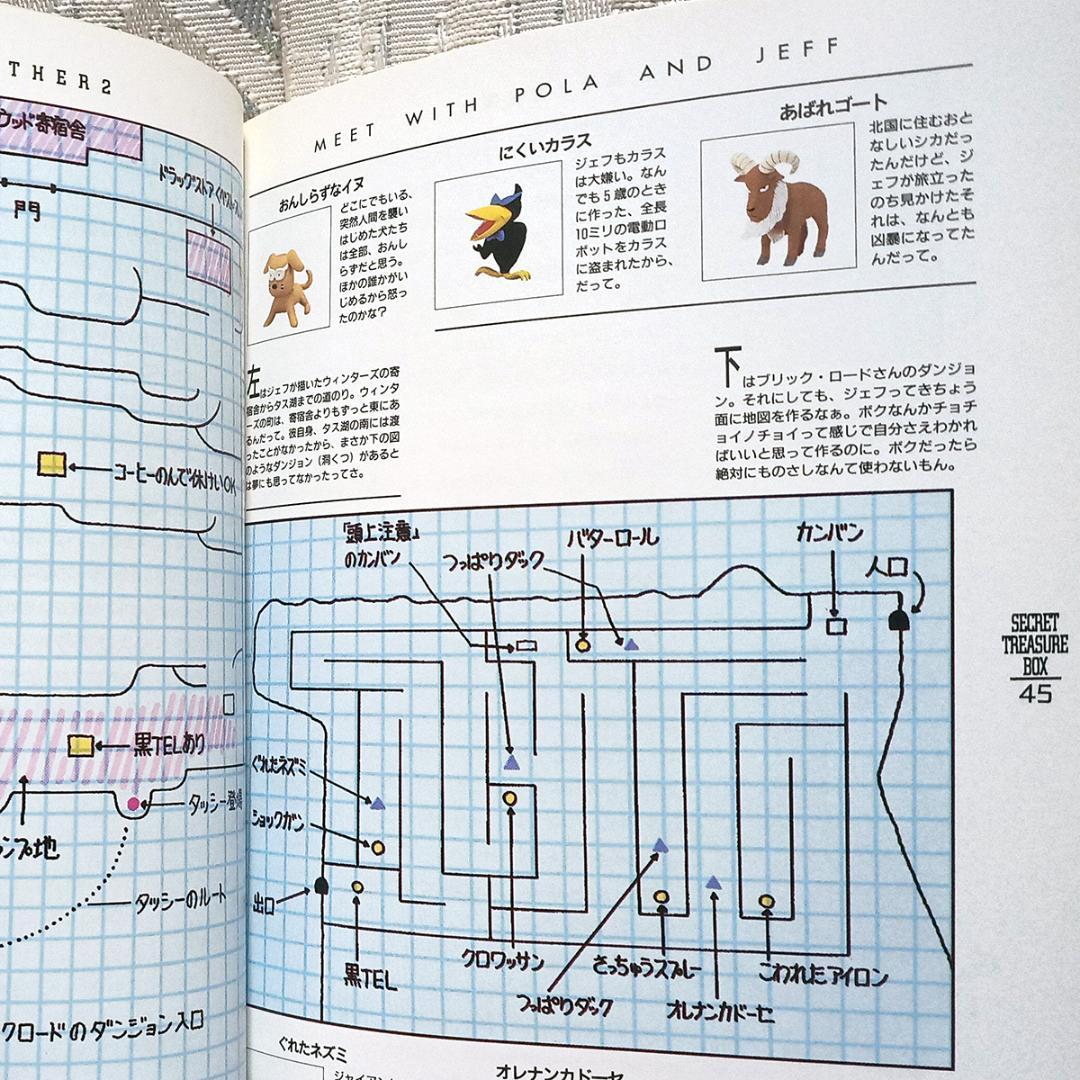 THER2
ウッド寄宿舎
門
コーヒーのんで休けいOK
黒TELあり
タッシー登場
ンプ地
タッシーのルート
クロードのダンジョン入口
MEET WITH POLA AND JEFF
おんしらずなイヌ
どこにでもいる、
突然人間を襲い
はじめた犬たち
は全部、おんし
らずだと思う。
ほかの誰かがい
じめるから怒っ
たのかな？
にくいカラス
ジェフもカラス
は大嫌い。なん
でも5歳のとき
に作った、全長
10ミリの電動ロ
ボットをカラス
に盗まれたから、
だって。
あばれゴート
北国に住むおと
なしいシカだっ
たんだけど、ジ
ェフが旅立った
のち見かけたそ
れは、なんとも
凶暴になってた
んだって。
左はジェフが描いたウィンターズの寄
宿舎からタス湖までの道のり。ウィンタ
ーズの町は、寄宿舎よりもずっと東にあ
るんだって。彼自身、タス湖の南には渡
ったことがなかったから、まさか下の図
のようなダンジョン（洞くつ）があると
は夢にも思ってなかったってさ。
下はブリック・ロードさんのダンジョ
ン。それにしても、ジェフってきちょう
面に地図を作るなぁ。ボクなんかチョチ
ョイノチョイって感じで自分さえわかれ
ばいいと思って作るのに。ボクだったら
絶対にものさしなんて使わないもん。
「頭上注意」
のカンバン
つっぱりダック
バターロール
カンバン
入口
ぐれたネズミ
ショックガン
出口
黒TEL
クロワッサン
つっぱりダック
さっちゅうスプレー
オレナンカドーセ
こわれたアイロン
SECRET
TREASURE
BOX
45
ぐれたネズミ
オレナンカドーセ